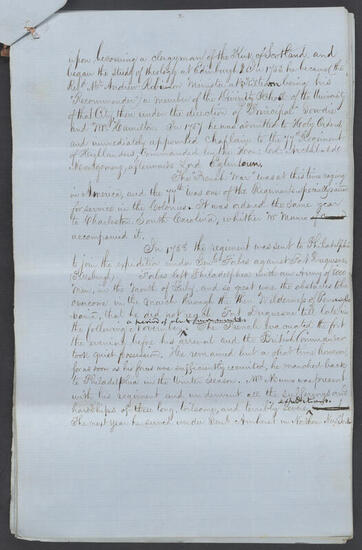 upon becoming a clergyman of the Kirk of Scotland, and
began the study of theology at Edinburgh. In 1755 he became the
Rev. Mr. Andrew Robinson Minister at Kiltearn being his
"Recommender", a member of the Divinity School of the University
of that City, then under the direction of Principal Gowdie
and Mr. Hamilton. In 1757 he was admitted to Holy Orders
and immediately appointed Chaplain to the 77th Regiment
of Highlanders, Commanded by the Hon: Col: Archibald
Montgomery, afterwards Lord Eglintoun.
The "French War" was at this time raging
in America, and the 77th was one of the Regiments specially
for service in the Colonies. It was ordered the same year
to Charleston, South Carolina, whither Mr Munro
accompanied it.
In 1758 the regiment was sent to Philadelphia
to join the expedition under Forbes against Fort Duquesne
Forbes left Philadelphia with an Army of
Men, in the month of July, and so great was the obstacles
overcome in the march through the Wilderness of Pennsyl-
vania, that he did not reach Fort Duquesne till late in
the following November, a period of about four months. The French evacuated the fort
the evening before his arrival and the British Commander
took quiet possession. He remained but a short time however
for as soon as his force was sufficiently recruited, he marched back
to Philadelphia in the Winter Season. Mr. Munro was present
with his regiment and underwent all the sufferings and
hardships of these long, toilsome, and terribly severe expeditions.
The next year he served under Amherst in Northern New York